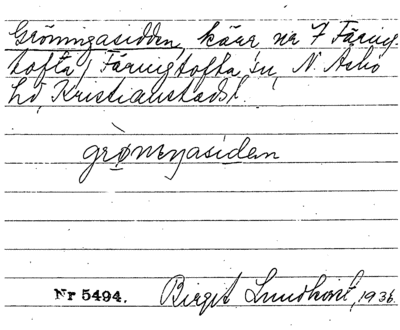 Gröningasidden, kärr nr 7 Färing-
tofta, Färingtofta sn, N. Åsbo
hd, Kristianstads l.
grø̀nıŋasidən
Nr 5494.
Birgit Lundkvist, 1936.